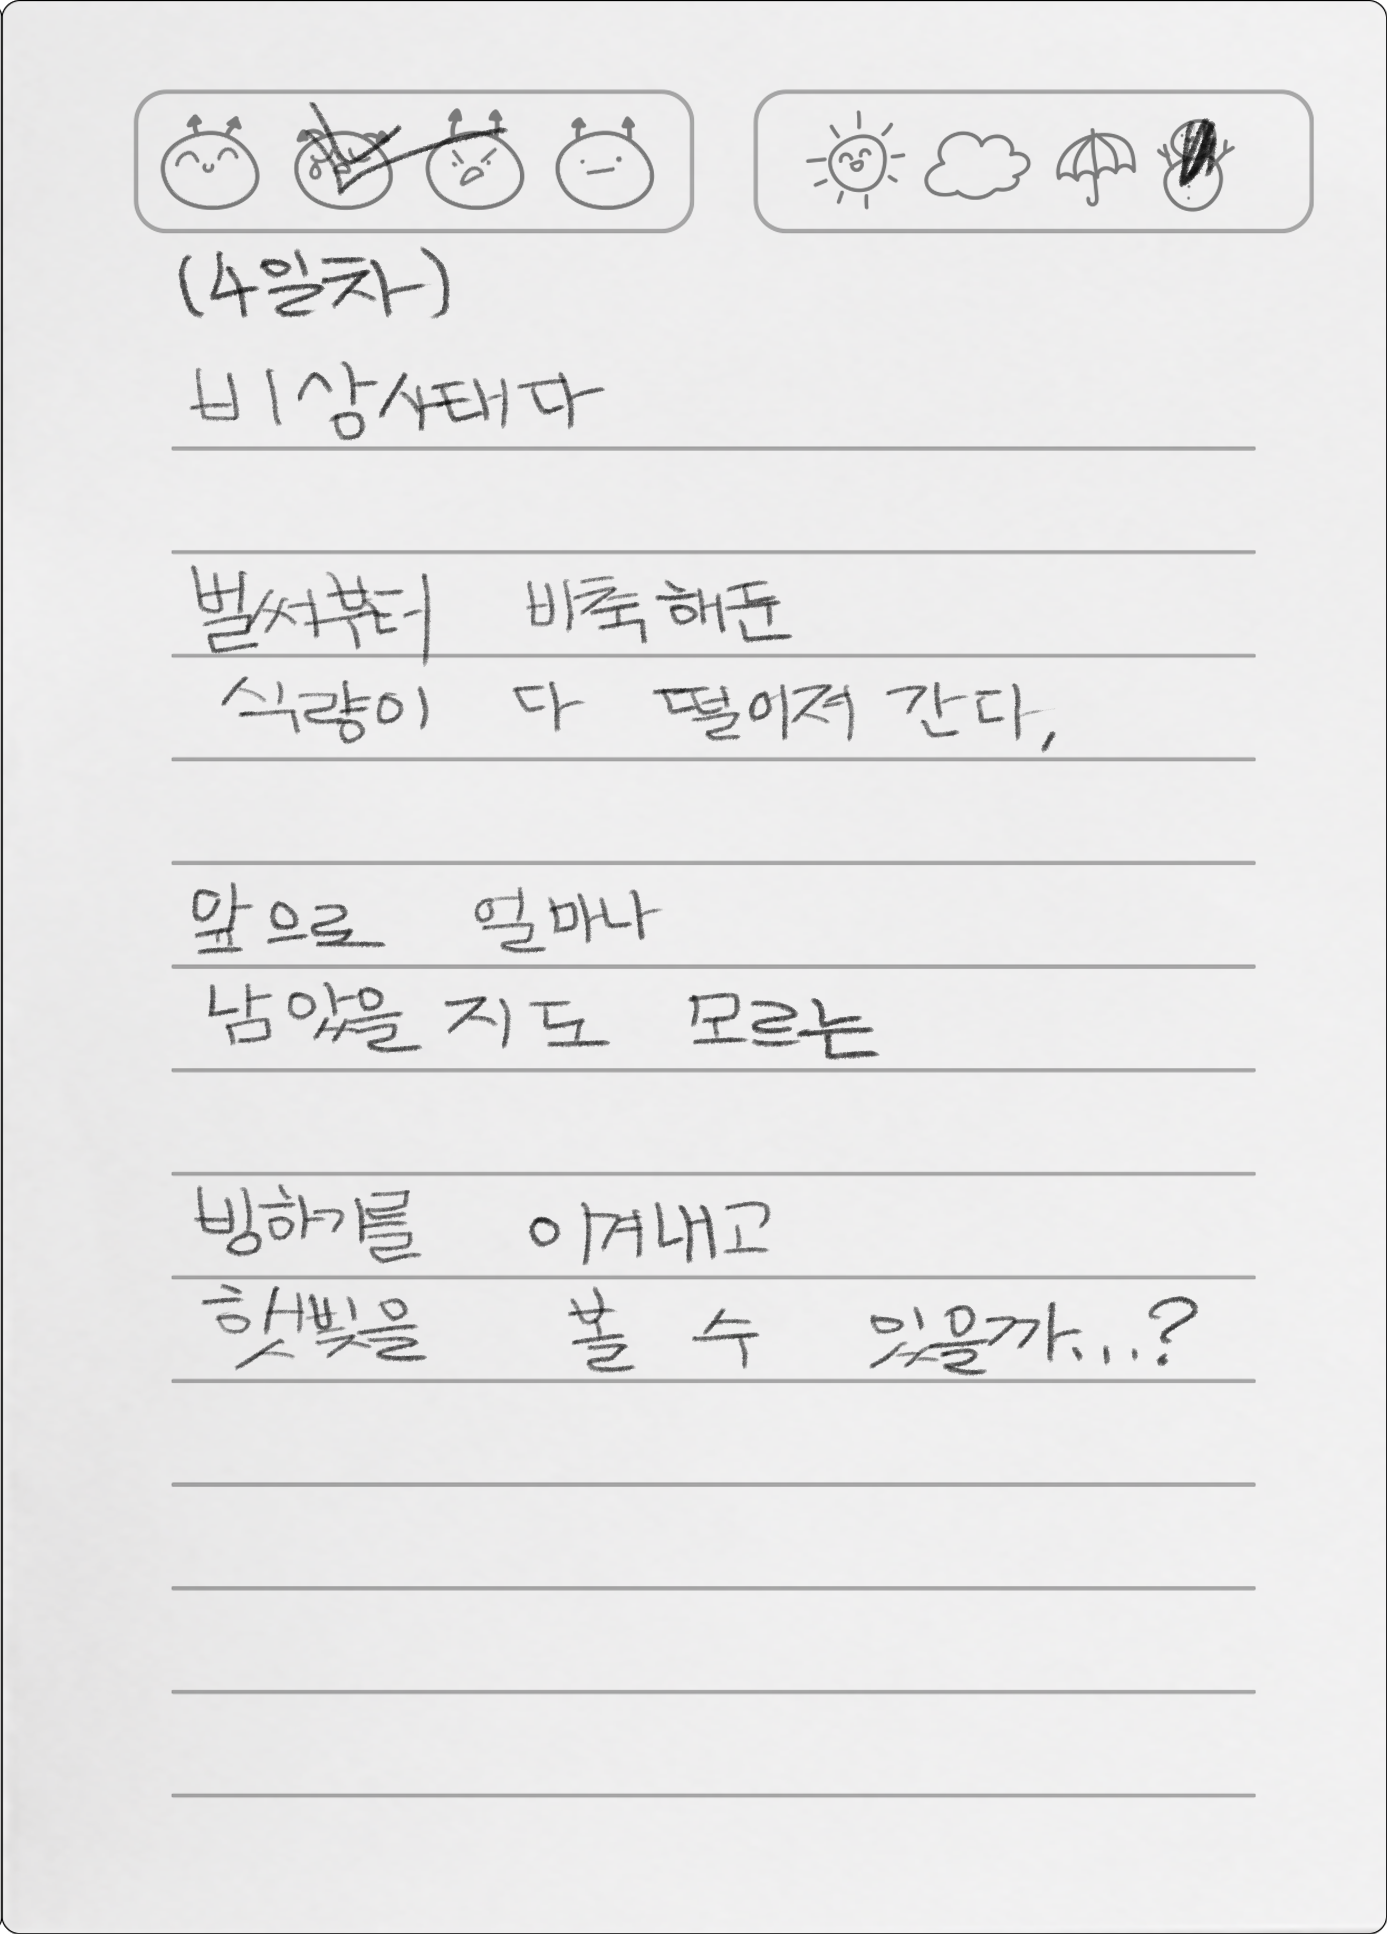 (4일차)
비상사태다
벌써부터 비축해둔
식량이 다 떨어져 간다,
앞으로 얼마나
남았을 지도 모르는
빙하기를 이겨내고
햇빛을 볼 수 있을까...?